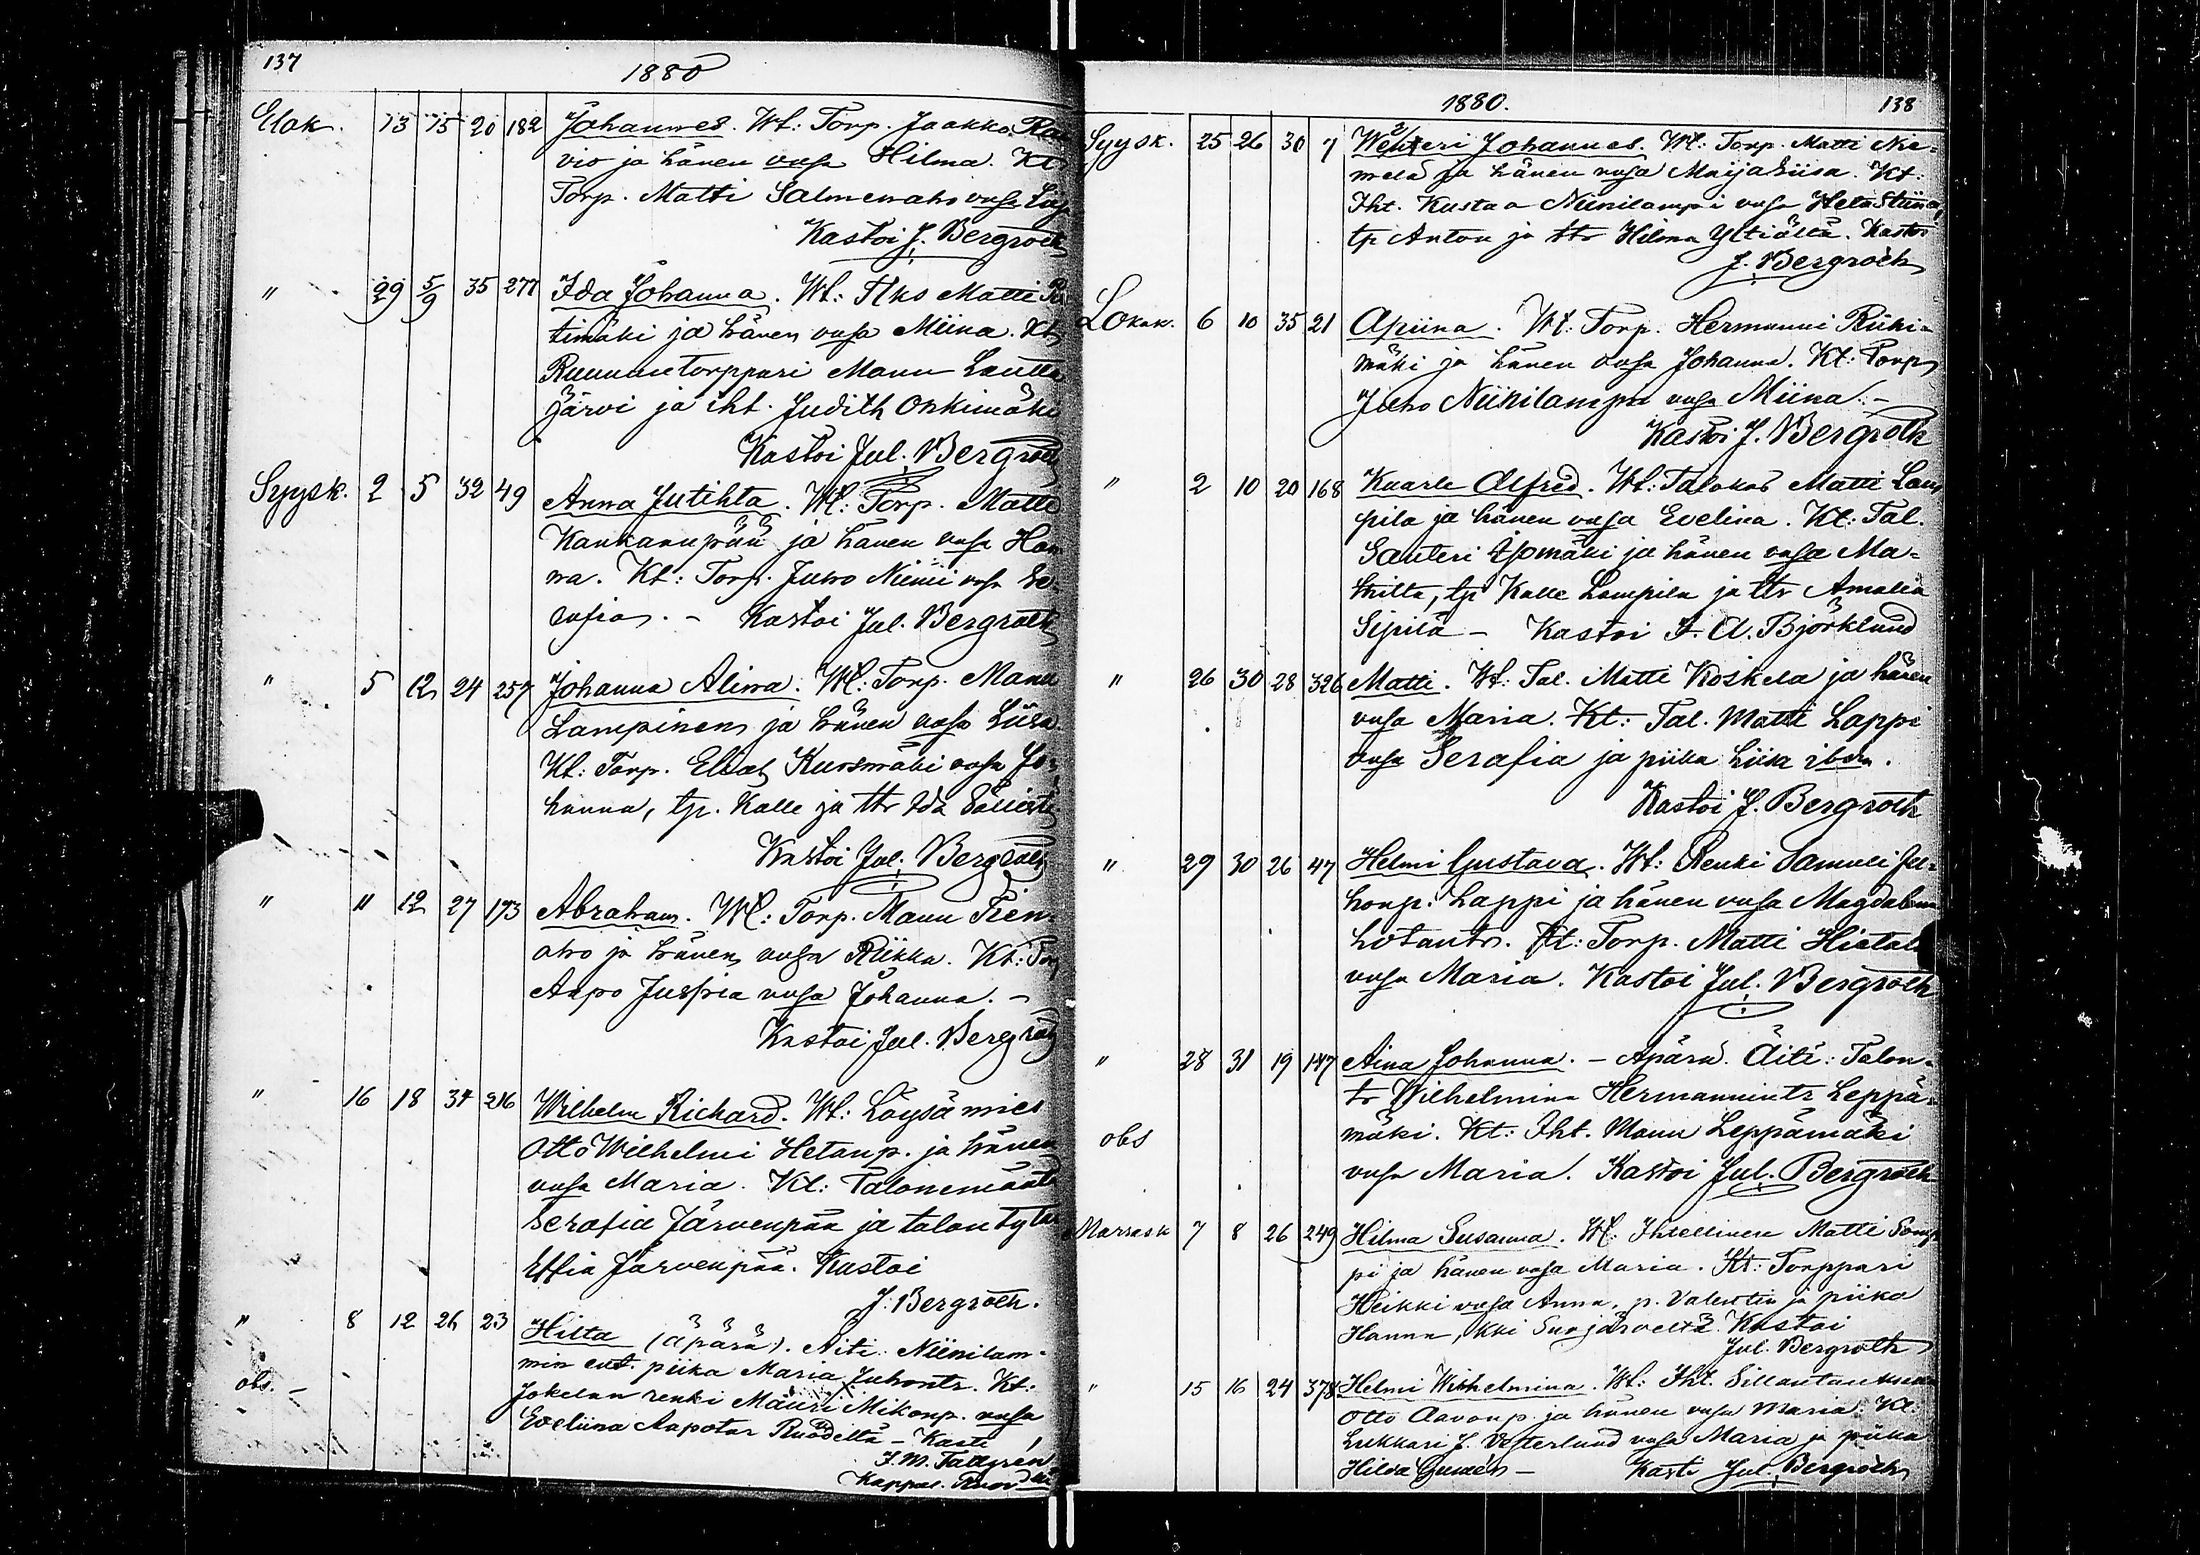 137
1880
Elok. 13 15 20 182 Johannes. Wt: Torp. Jaakko
vio ja hänen vmsa Hilma. Kt:
Torp. Matti Salmenaho vmsa
Kastoi J. Bergroth
" 29 5/9 35 277 Ida Johanna. Wt: Matti
timäki ja hänen vmsa Miina. Kt:
torppari Manu Lautta
järvi ja iht. Judith Onkimäki
Kastoi Jul. Bergroth
Syysk. 2 5 32 49 Anna Jutihta. Wt: Torp. Matti
Kankaanpää ja hänen vmsa Han
na. Kt: Torp. Juho Niemi vmsa Se-
rafia. - Kastoi Jul. Bergroth
" 5 12 24 257 Johanna Aliina. Wt: Torp. Manu
Lampinen ja hänen vmsa Liisa.
Kt: Torp. Elias Kuusmäki vmsa Jo-
hanna, tp. Kalle ja ttr Ida
Kastoi Jul. Bergroth
" 11 12 27 173 Abraham. Wt: Torp. Manu Tien-
aho ja hänen vmsa Riikka. Kt: Torp
Aapo Juspia vmsa Johanna. -
Kastoi Jul. Bergroth
" 16 18 34 216 Wilhelm Richard. Wt: Löysä mies
Otto Wilhelmi Hetanp. ja hänen
vmsa Maria. Kt: Talonemäntä
Serafia Järvenpää ja talon tytär
Effia Järvenpää. Kastoi
J. Bergroth.
" 8 12 26 23 Hilta (äpärä). Äiti: Niinilam-
min ent. piika Maria Juhontr. Kt:
obs. - Jokelan renki Mauri Mikonp. vmsa
Eveliina Aapotar Ruodeltä - Kasti
J. M. Tallgren
Kappal.
1880. 138
Syysk. 25 26 30 7 Wenteri Johannes. Wt: Torp. Matti Nie-
melä ja hänen vmsa Maija Liisa. Kt:
Iht. Kustaa Niinilampi vmsa Hela Stiina,
tp Anton ja ttr Hilma Yltiältä. Kastoi
J. Bergroth
Lokak. 6 10 35 21 Apiina. Wt: Torp. Hermanni Riihi-
mäki ja hänen vmsa Johanna. Kt: Torp
Juho Niinilampi vmsa Miina. -
Kastoi J. Bergroth
" 2 10 20 168 Kaarle Alfred. Wt: Talokas Matti Lam
pila ja hänen vmsa Evelina. Kt: Tal.
Santeri Isomäki ja hänen vmsa Ma-
thilta, tp Kalle Lampila ja ttr Amalia
Sipilä - Kastoi F. A. Björklund
" 26 30 28 326 Matti. Wt: Tal. Matti Koskela ja hänen
vmsa Maria. Kt: Tal. Matti Lappi
vmsa Serafia ja piika Liisa ibdm.
Kastoi J. Bergroth
" 29 30 26 47 Helmi Gustava. Wt: Renki Samuli Ju-
honp. Lappi ja hänen vmsa Magdalena
Kt: Torp. Matti Hietala
vmsa Maria. Kastoi Jul. Bergroth
" 28 31 19 147 Aina Johanna. - Äpärä. Äiti: Talon-
tr Wilhelmina Hermannintr Leppä-
obs mäki. Kt: Iht. Manu Leppämäki
vmsa Maria. Kastoi Jul. Bergroth
Marrask 7 8 26 249 Hilma Susanna. Wt: Ihtellinen Matti Somp
pi ja hänen vmsa Maria. Kt: Torppari
Heikki vmsa Anna, p. Valentin ja piika
Hanna, kki Suojärveltä. Kastoi
Jul. Bergroth
" 15 16 24 378 Helmi Wilhelmina. Wt: Iht.
Otto Aavonp. ja hänen vmsa Maria. Kt:
Lukkari J. Vesterlund vmsa Maria ja piika
Hilda - Kasti Jul. Bergroth